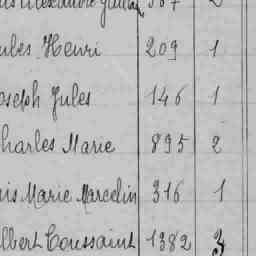 Alexandre 367 2
ules Henri 209 1
oseph Jules 146 1
harles Marie 895 2
is Marie Marcelin 316 1
lbert Toussaint 1382 3